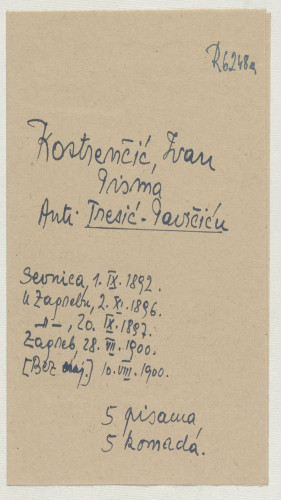 R6248a
Kostrenčić, Ivan
Pisma
Anti Tresić-Pavičiću
Sevnica, 1. IX. 1892.
U Zagrebu, 2. XI. 1896.
-"-, 20. IX. 1897.
Zagreb, 28. VII. 1900.
[Bez naj.] 10. VIII. 1900.
5 pisama,
5 komada.